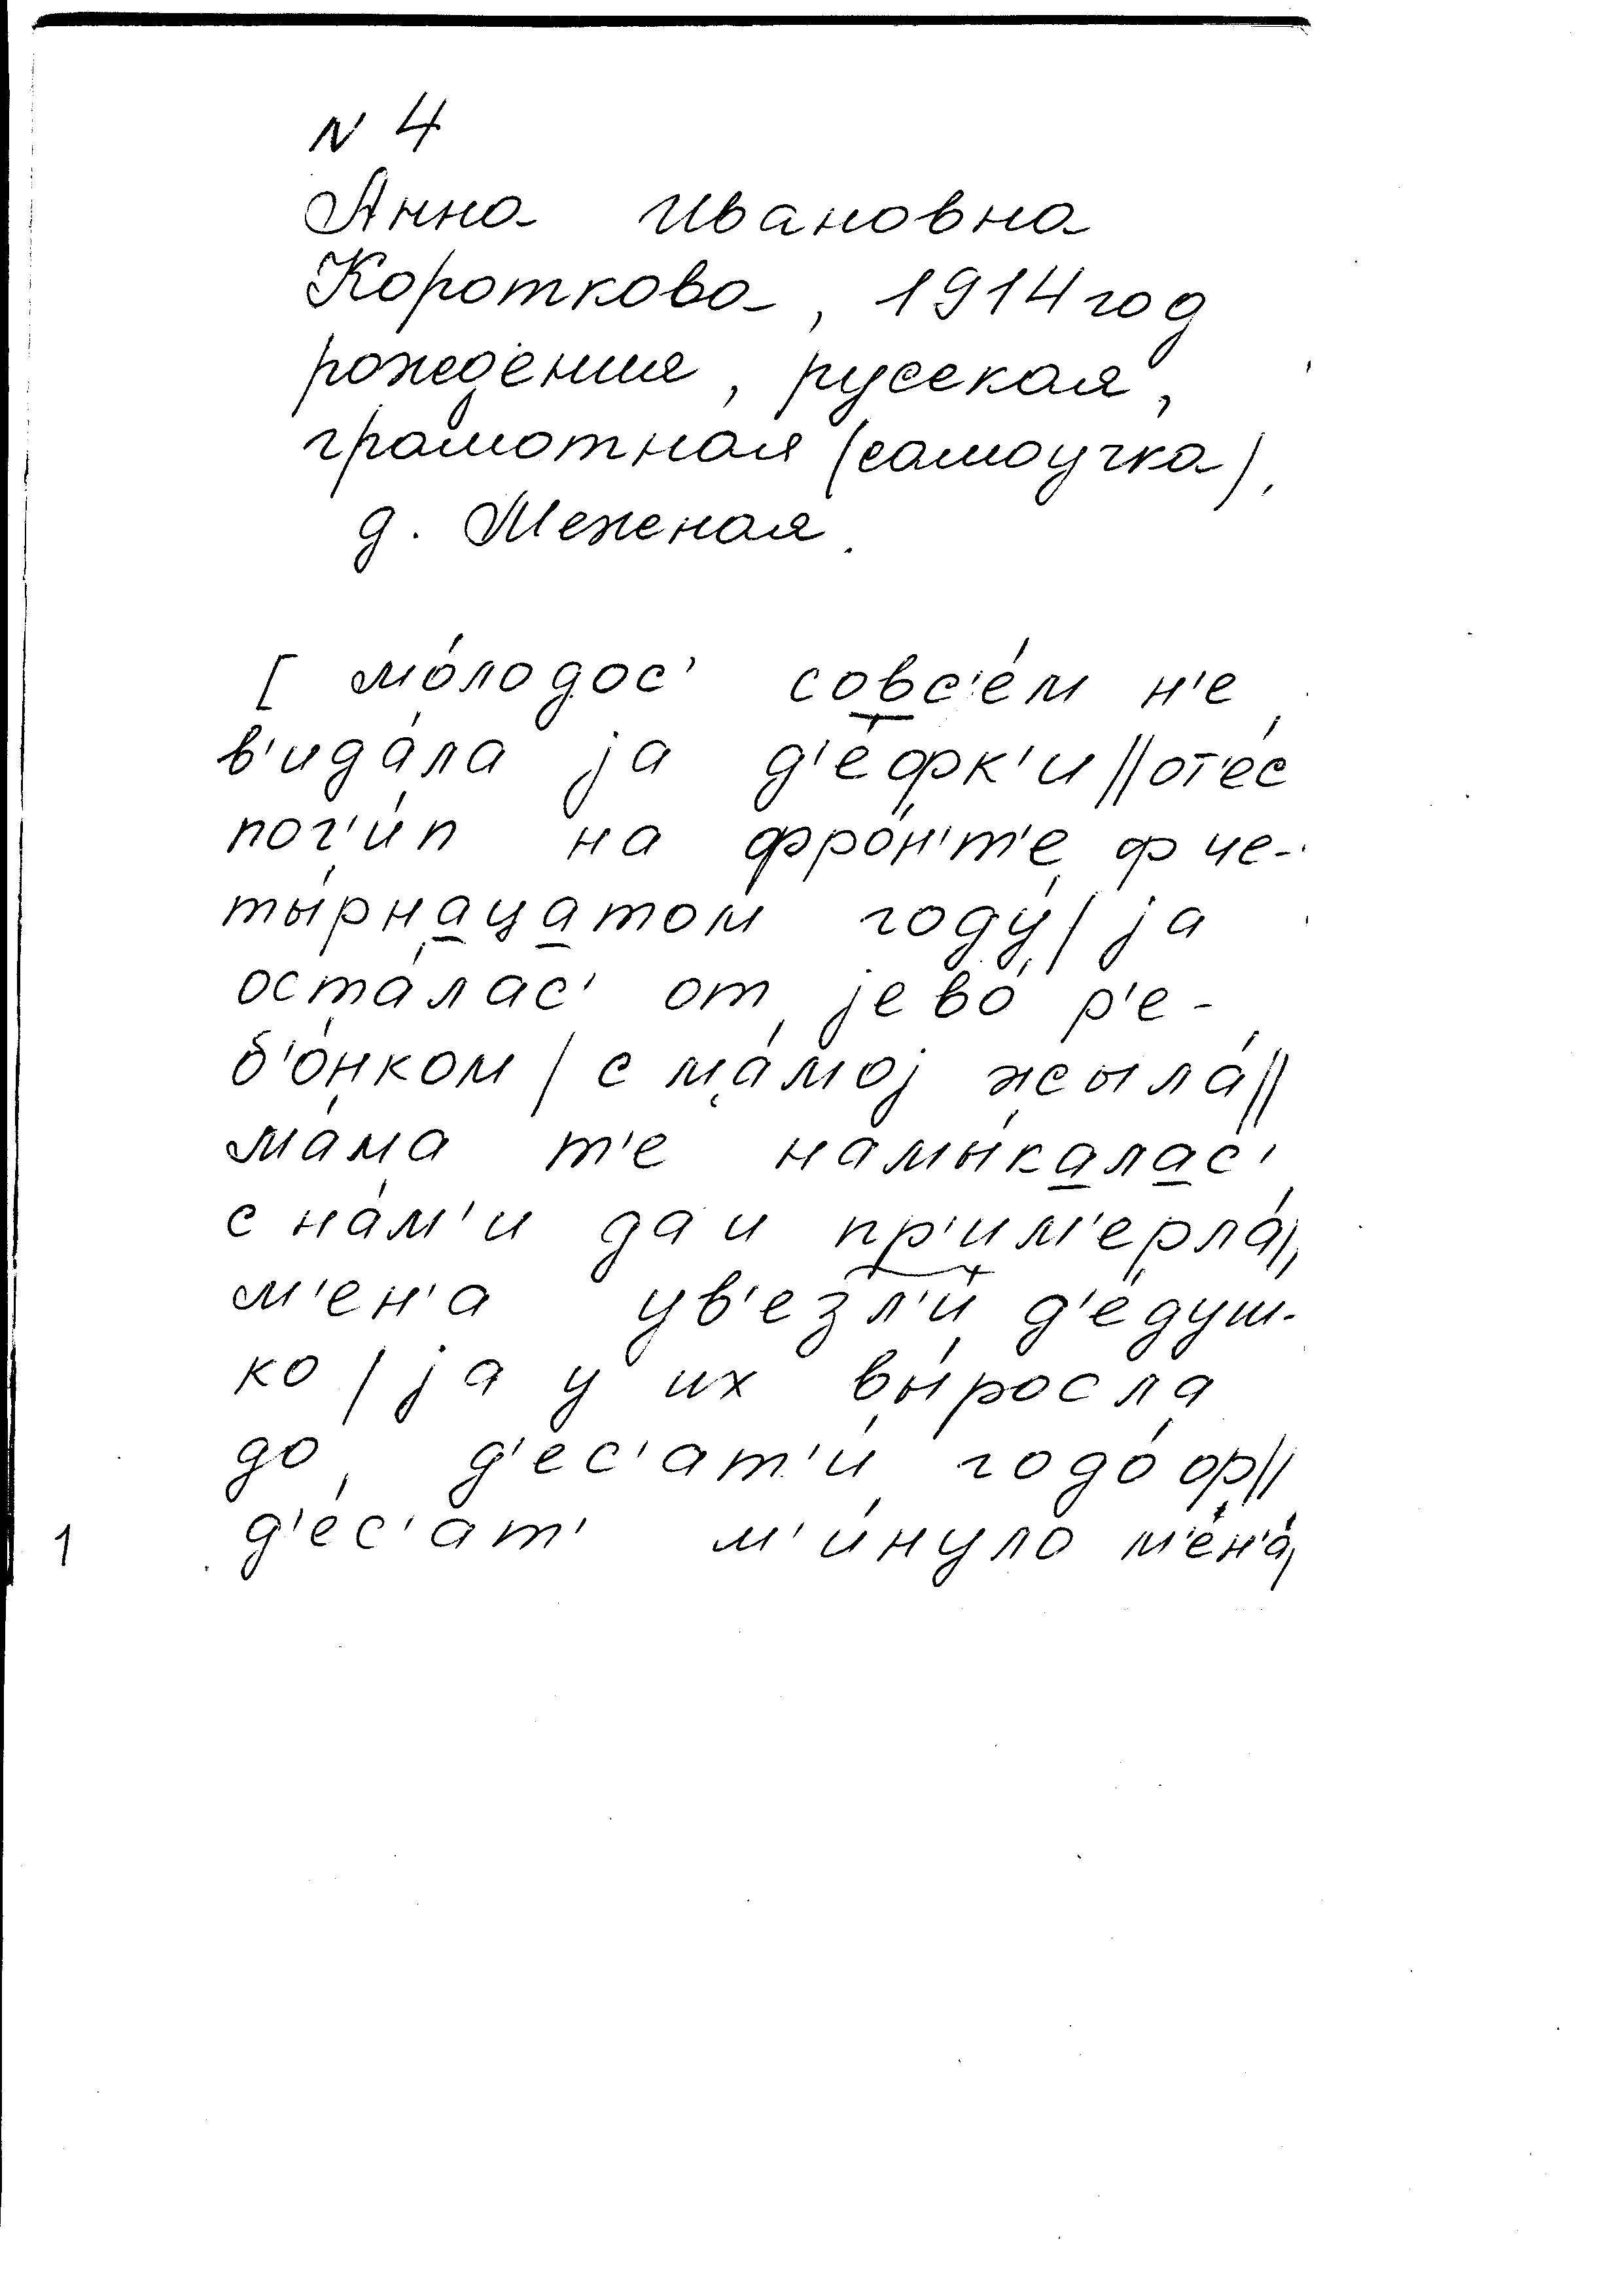 N 4
Анна Ивановна
Короткова, 1914 год
рождения, русская,
грамотная (самоучка),
д. Меженая.
[ мо́лодос' совс'е́м н'е
в'ида́ла ја д'е́фк'и || от'е́с
пог'и́п на фро́н'т'е ф че-
ты́рнацатом году́ / ја
оста́лас' от јево́ р'е-
б'о́нком / с ма́мој жыла́ ||
ма́ма т'е намы́калас'
с на́м'и да и пр'им'ерла́ /
м'ен'а ув'езл'и́ д'е́душ-
ко / ја у их вы́росла
до д'ес'ат'и́ годо́ф ||
д'е́с'ат' м'и́нуло м'ен'а́ /
1